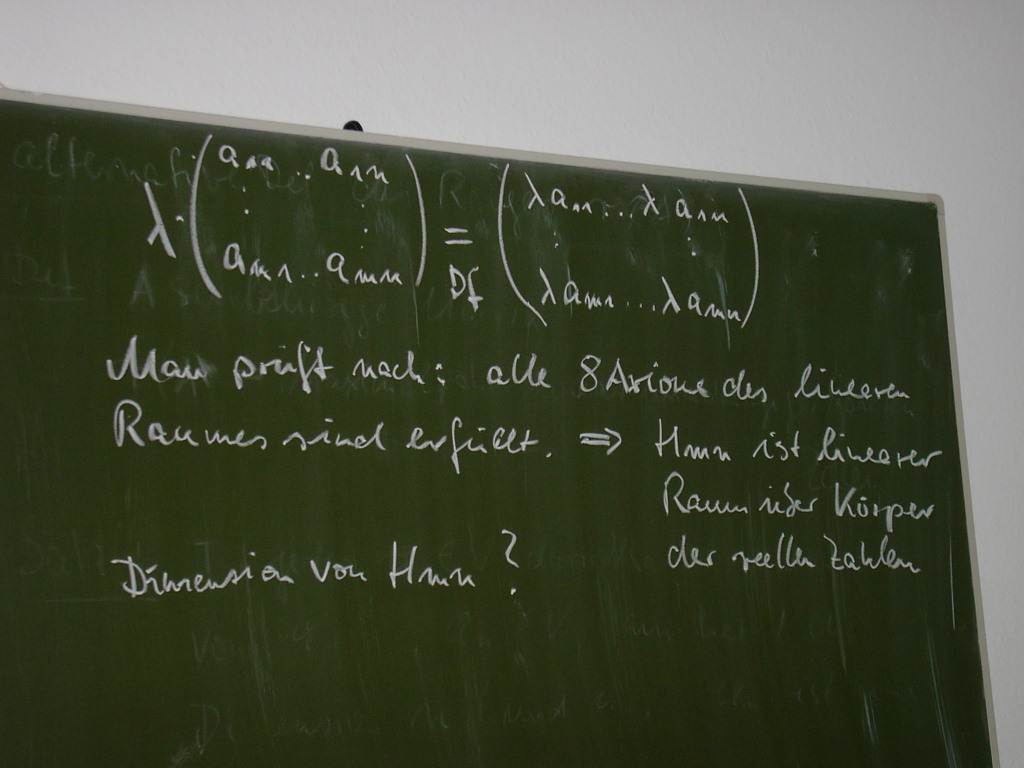 λ · ( a₁₁ .. a₁ₙ ⋮ ⋮ aₘ₁ .. aₘₙ ) =Df ( λa₁₁ ... λa₁ₙ ⋮ ⋮ λaₘ₁ ... λaₘₙ )
Man prüft nach: alle 8 Axiome des linearen
Raumes sind erfüllt. => Hmn ist linearer
Raum über Körper
der reellen Zahlen
Dimension von Hmn ?